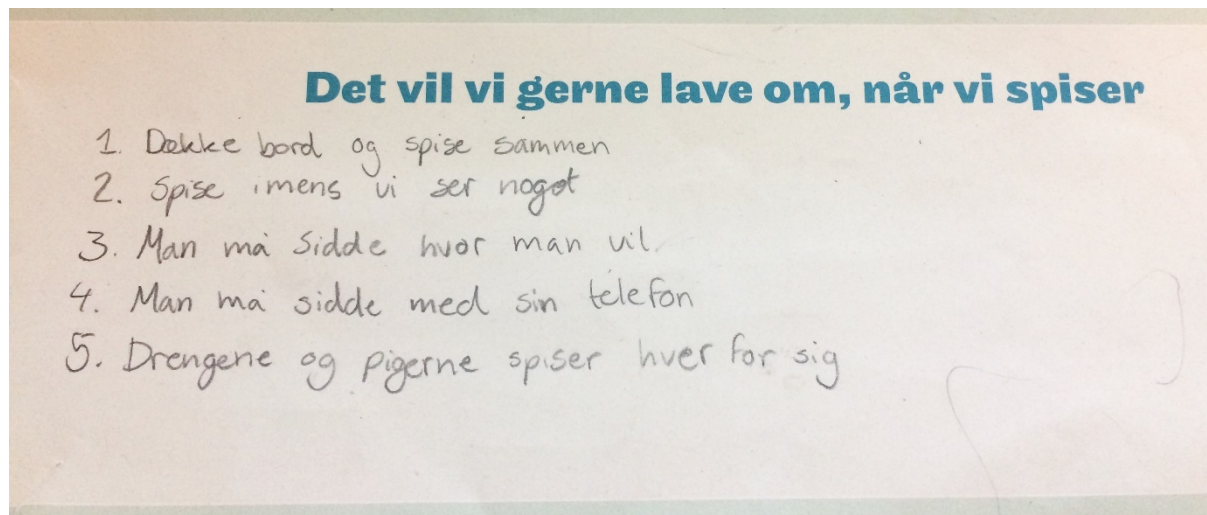 Det vil vi gerne lave om, når vi spiser
1. Dække bord og spise sammen
2. Spise imens vi ser noget
3. Man må sidde hvor man vil.
4. Man må sidde med sin telefon
5. Drengene og pigerne spiser hver for sig